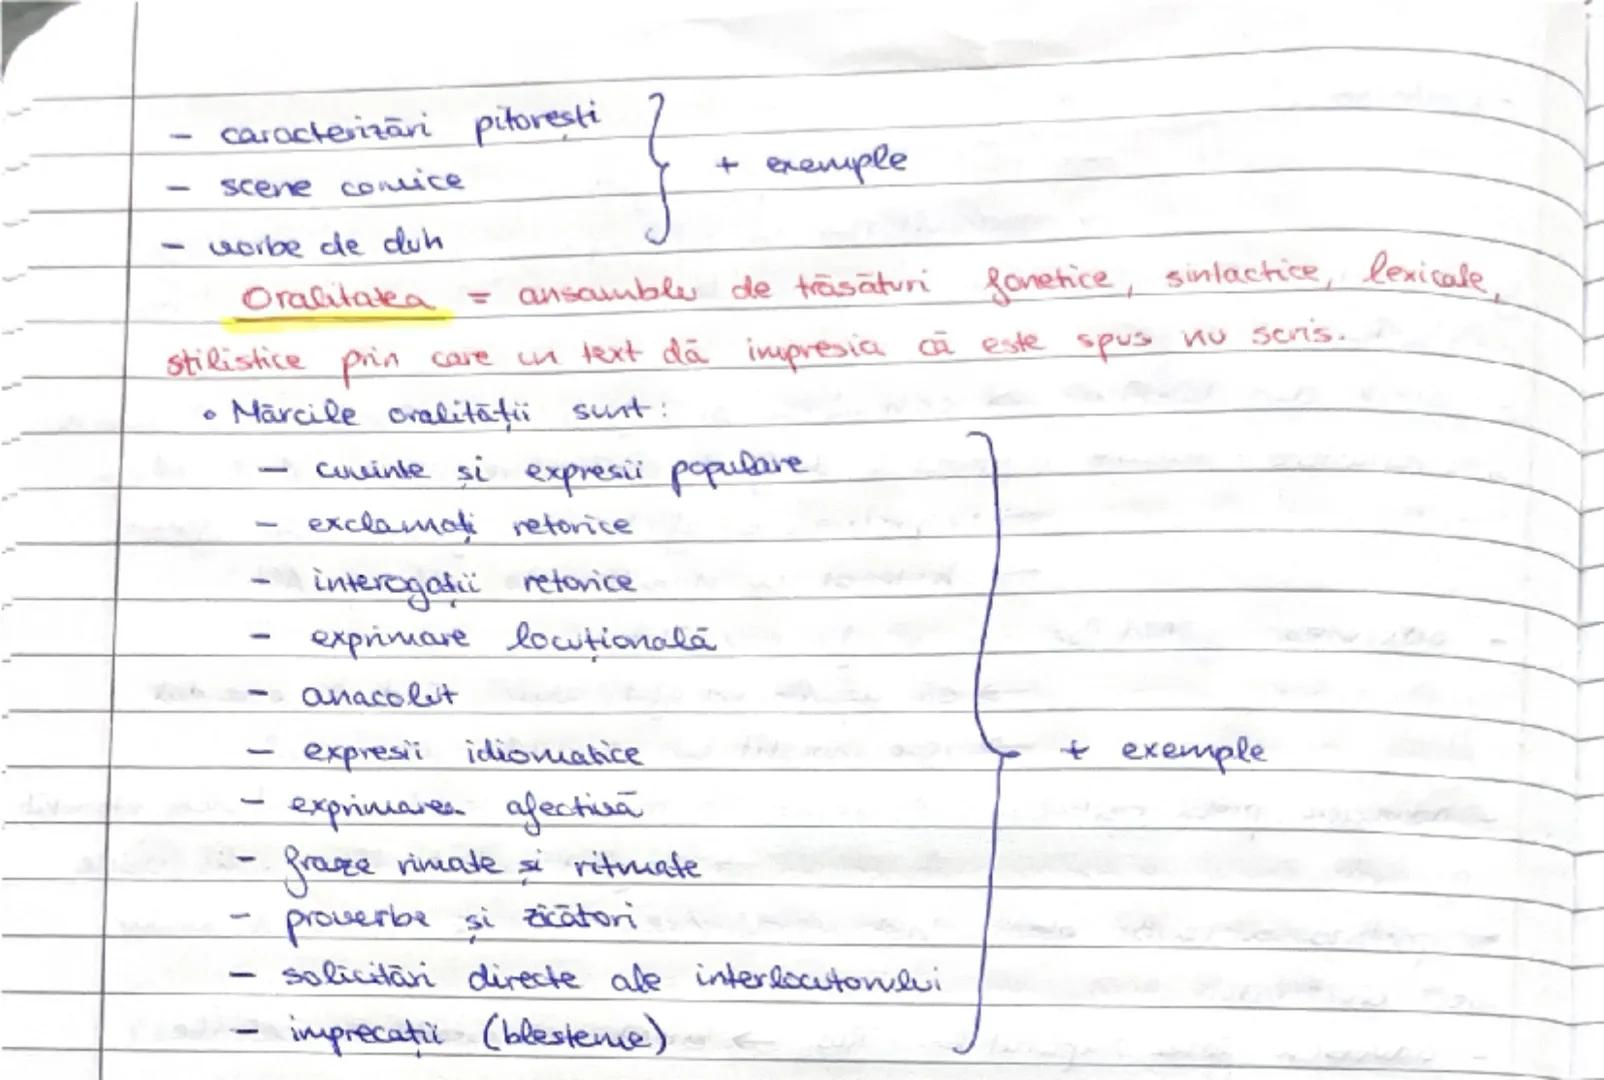 - caracterizări pitorești
+ exemple
- scene comice
- vorbe de duh
Oralitatea = ansamblu de trăsături fonetice, sintactice, lexicale,
stilistice prin care un text dă impresia că este spus nu scris.
• Mărcile oralității sunt:
- cuvinte și expresii populare
- exclamați retorice
- interogații retorice
- exprimare locuțională
- anacolut
- expresii idiomatice
+ exemple
- exprimarea afectivă
- fraze rimate și ritmate
- proverbe și zicători
- solicitări directe ale interlocutorului
- imprecații (blesteme)